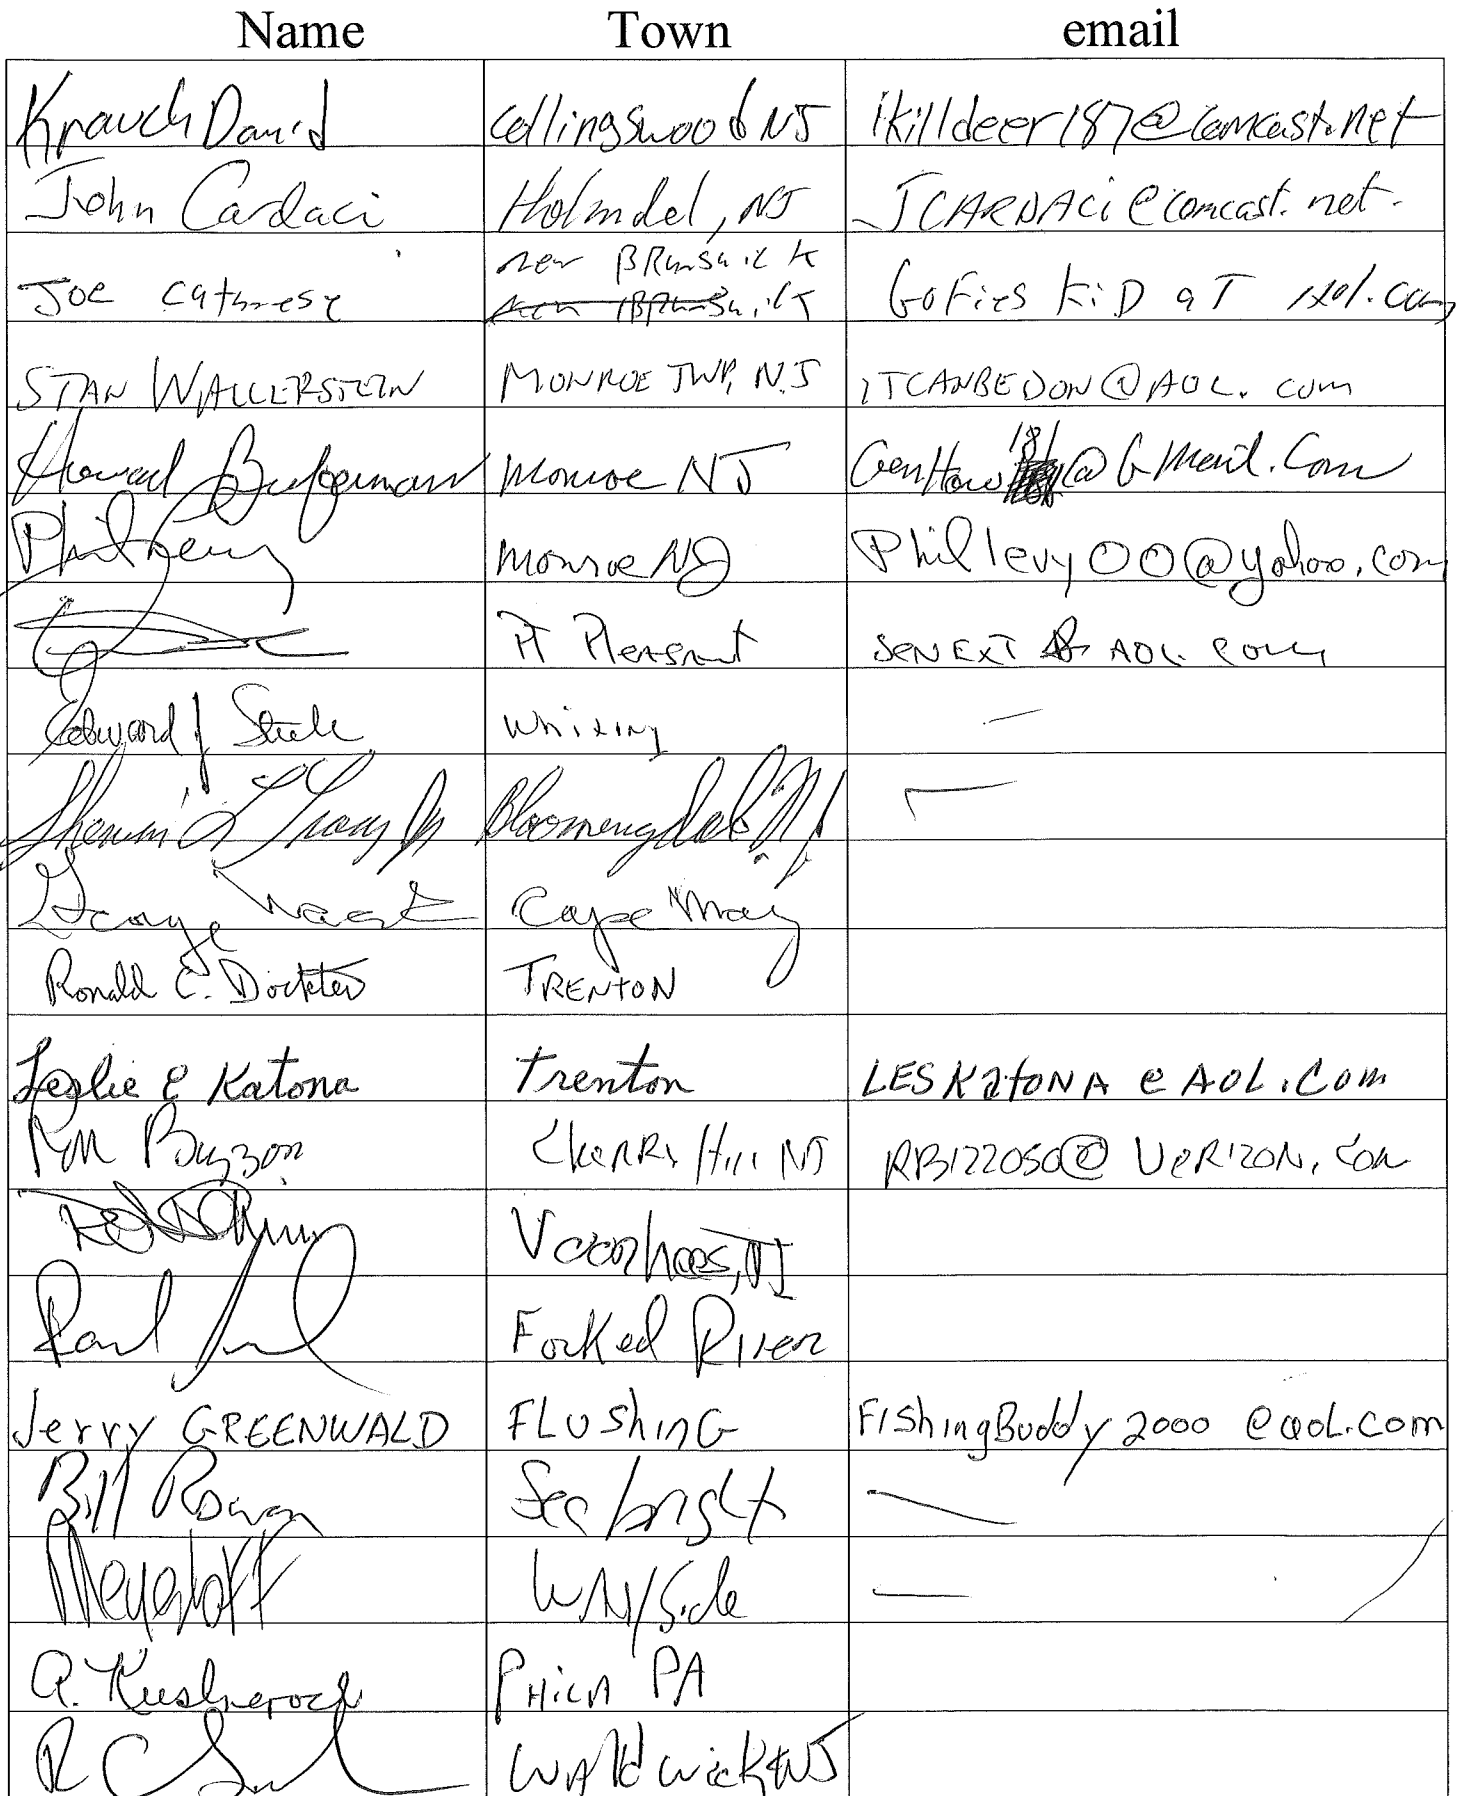 Name Town email
Krauch David Collingswood NJ ikilldeer187@comcast.net
John Cardaci Holmdel, NJ JCARDACi@comcast.net.
new BRunswick
Joe GoFies KiD aT aol.com
STAN WALLERSTEIN MONROE TWP, N.J ITCANBEDON@AOL.com
181
Howard Monroe NJ GenHow @GMail.Com
Phil Levy Monroe NJ Phillevy00@yahoo.com
PT Pleasant SENEXT @ AOL.com
Edward J Steele Whiting —
Bloomingdale NJ —
George Cape May
Ronald C. Dockter TRENTON
Leslie E Katona Trenton LESKatoNA @ AOL.Com
Ron Buzzon Cherry Hill NJ RB122050@VeRIZON.Com
Voorhees, NJ
Paul Forked River
Jerry GREENWALD FLUShinG FIShingBuddy2000 @aol.com
Bill Rowan Seabright —
Meyerhoff WAYSide —
Phila PA
R C WAldwick NJ